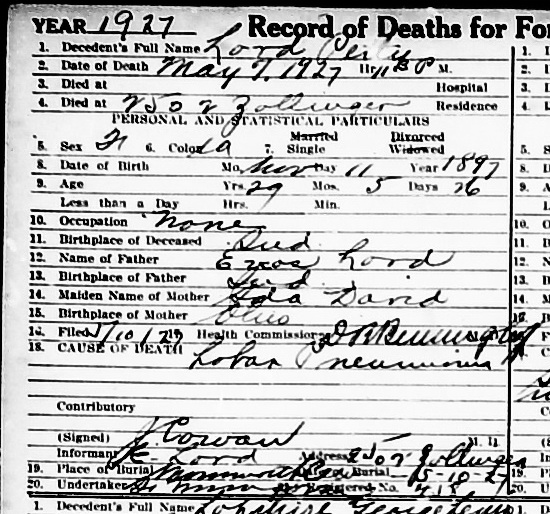 YEAR 1927 Record of Deaths for For
1. Decedent's Full Name Lord 1.
2. Date of Death May 7, 1927 Hr. 11 P M. 2.
3. Died at Hospital 3.
4. Died at 2502 Zollinger Residence 4.
PERSONAL AND STATISTICAL PARTICULARS
Married Divorced
5. Sex 6. Color 7. Single Widowed 5.
8. Date of Birth Mo. Nov Day 11 Year 1897 8.
9. Age Yrs. 29 Mos. 5 Days 26 9.
Less than a Day Hrs. Min.
10. Occupation None 10.
11. Birthplace of Deceased Ind 11.
12. Name of Father Lord 12.
13. Birthplace of Father Ind 13.
14. Maiden Name of Mother Ada David 14.
15. Birthplace of Mother Ohio
16. Filed 5/10/27 Health Commissioner
18. CAUSE OF DEATH Lobar Pneumonia
Contributory
(Signed) J Cowan M. D.
Informant Lord Address 2502 Zollinger
19. Place of Burial Date of Burial 5-10-27 19.
20. Undertaker Registered No. 418 20.
1. Decedent's Full Name Georgetown 1.